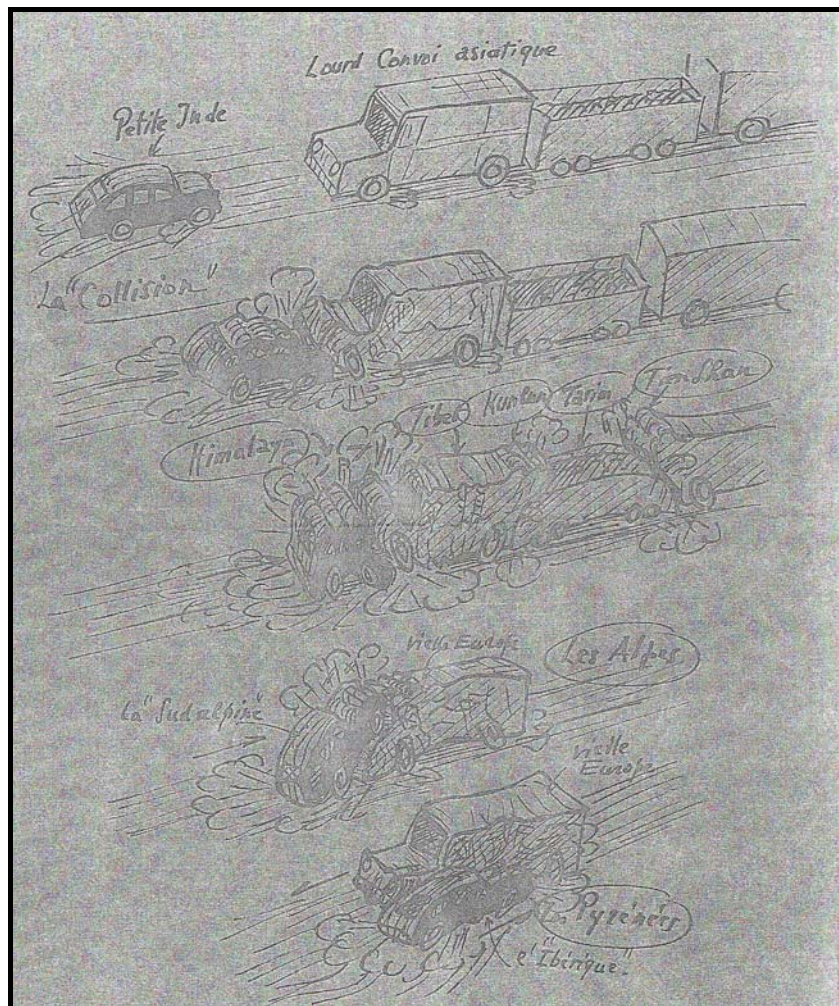 Lourd Convoi asiatique
Petite Inde
La "Collision"
Himalaya
Tibet
Kunlun
Tarim
Tien Shan
vielle Europe
Les Alpes
La "Sudalpine"
vielle
Europe
Les Pyrénées
l'"Ibérique"